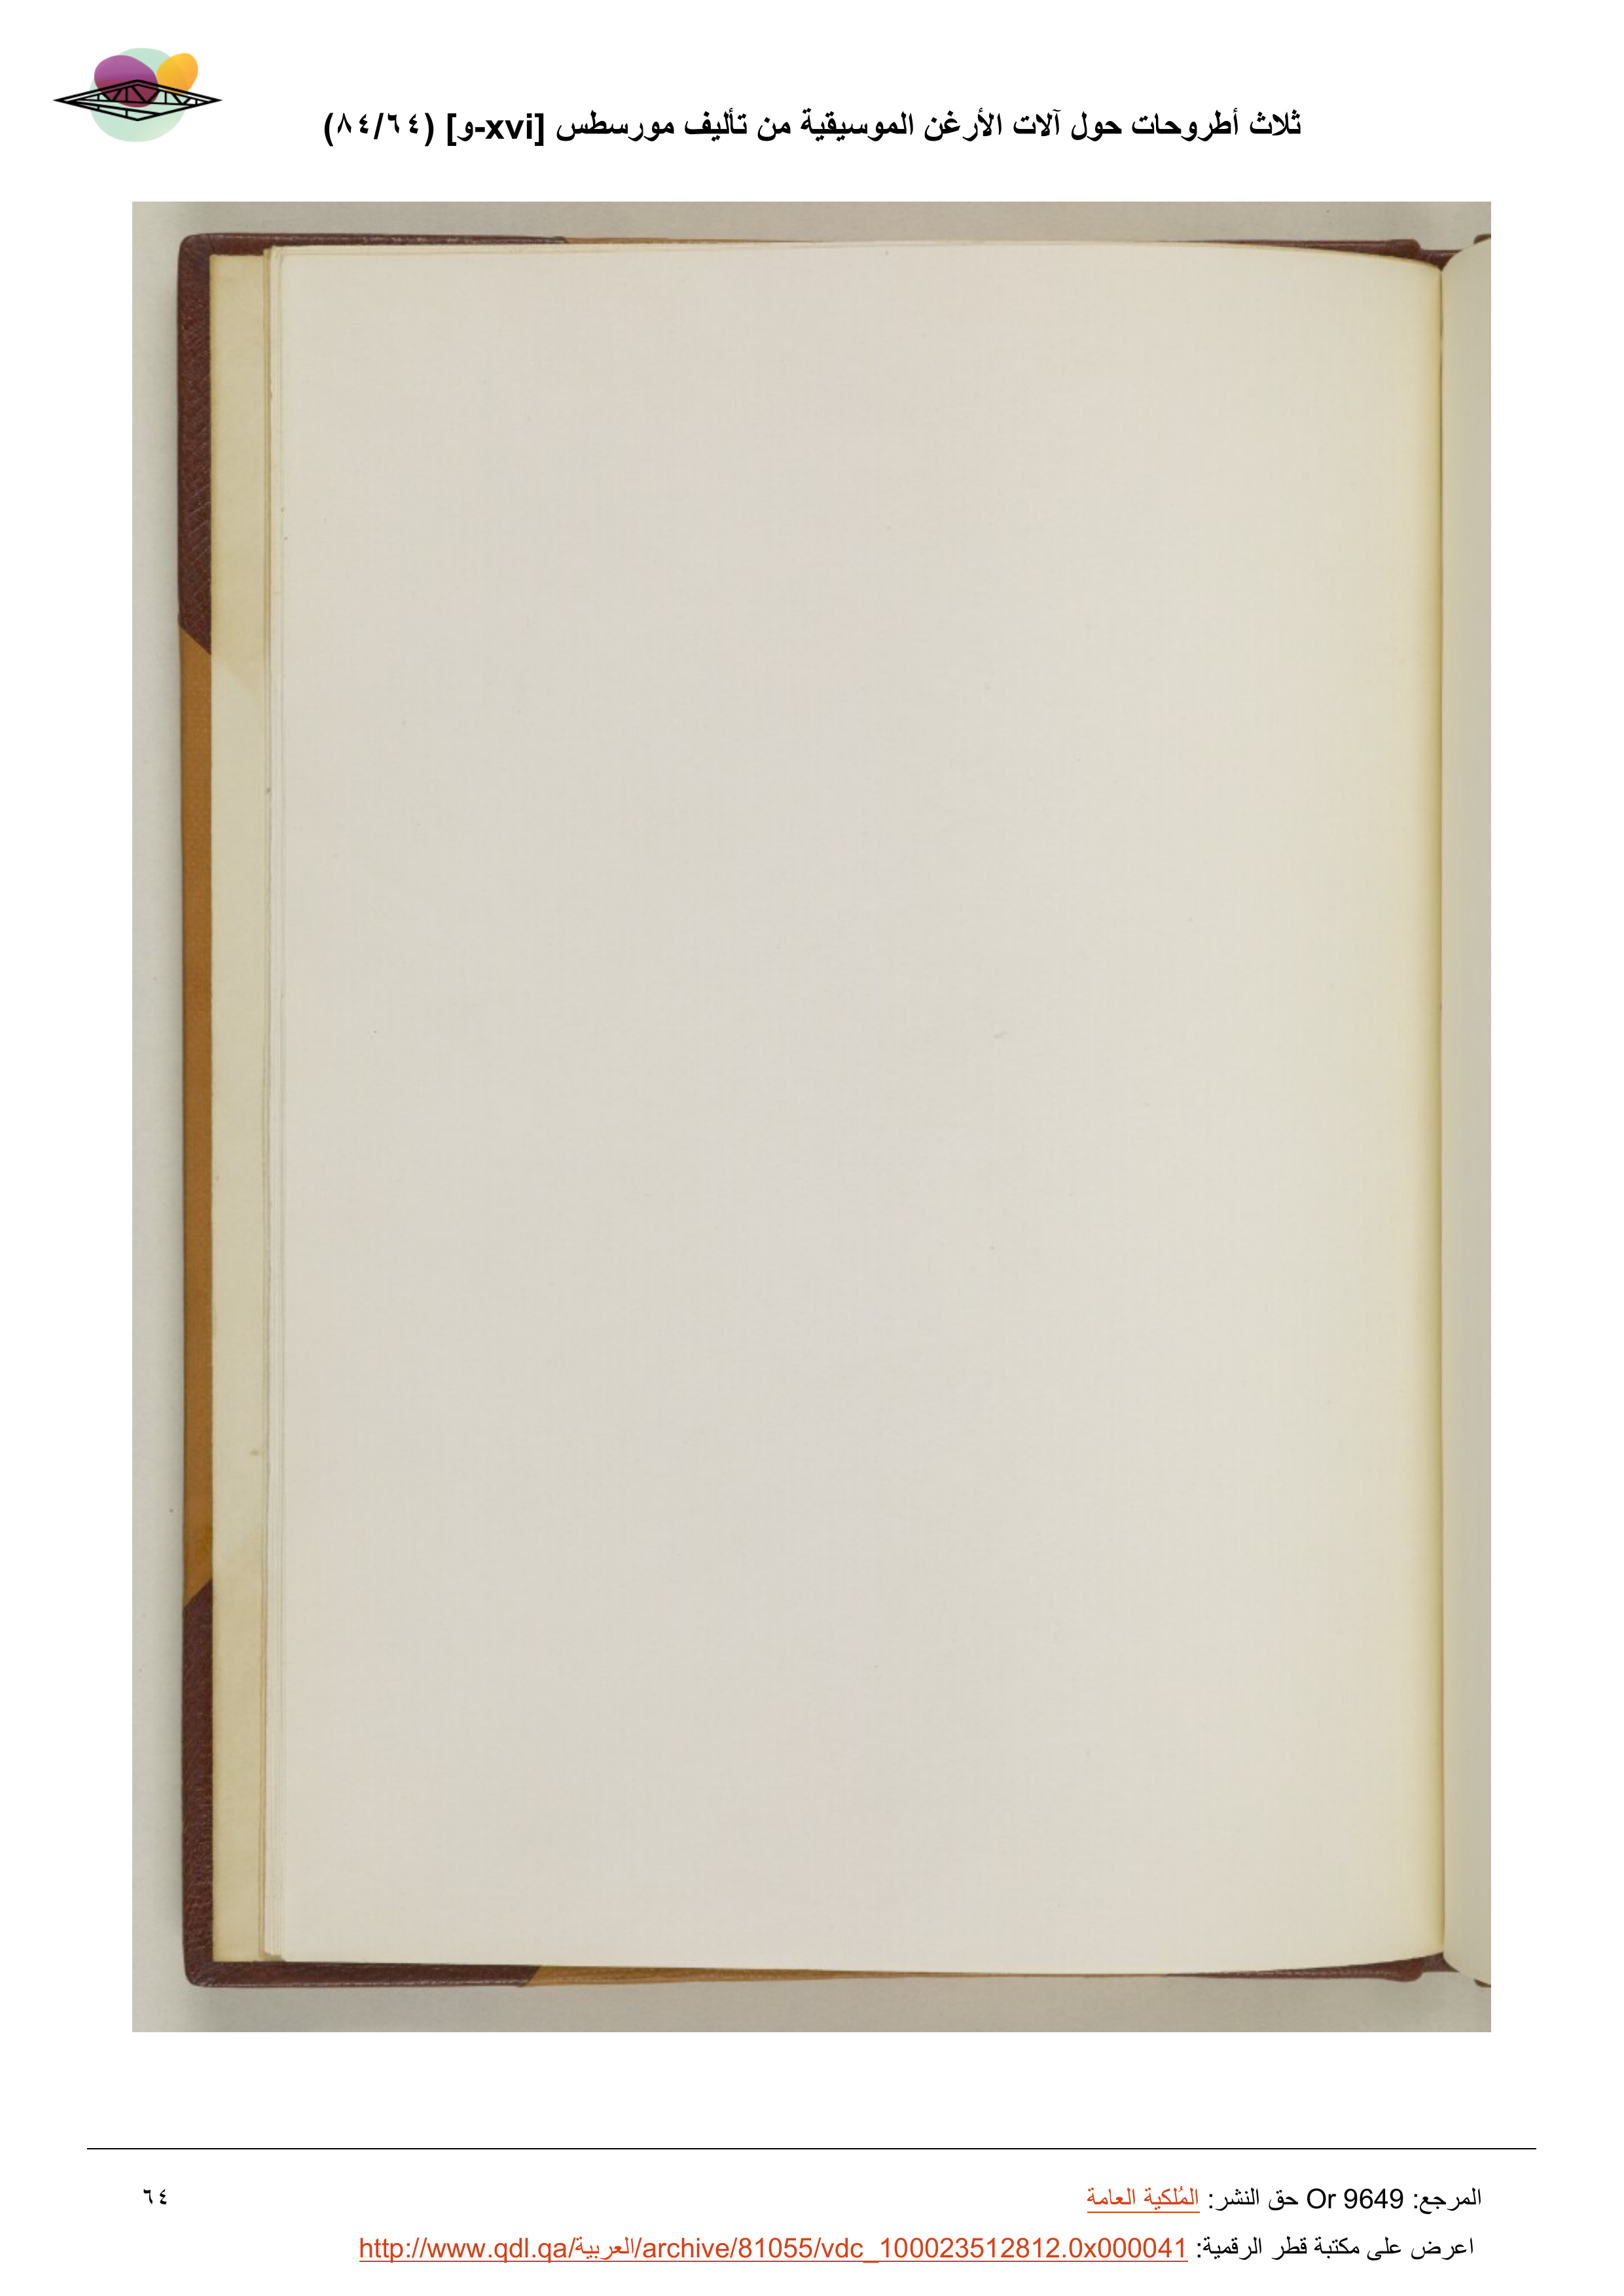 ثلاث أطروحات حول آلات الأرغن الموسيقية من تأليف مورسطس [xvi-و] (٨٤/٦٤)
المرجع: Or 9649 حق النشر: المُلكية العامة
٦٤
اعرض على مكتبة قطر الرقمية: http://www.qdl.qa/العربية/archive/81055/vdc_100023512812.0x000041